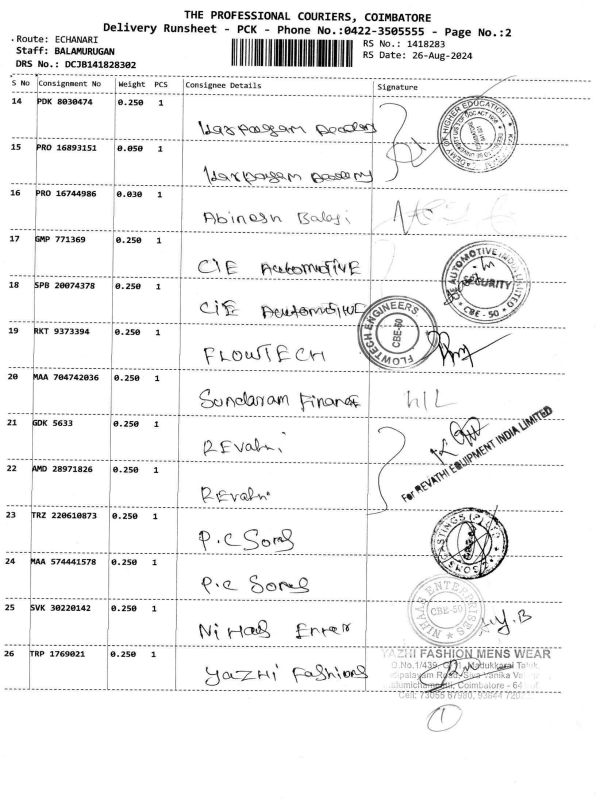 THE PROFESSIONAL COURIERS, COIMBATORE
Delivery Runsheet - PCK - Phone No.:0422-3505555 - Page No.:2
Route: ECHANARI
RS No.: 1418283
Staff: BALAMURUGAN
RS Date: 26-Aug-2024
DRS No.: DCJB141828302
S No Consignment No Weight PCS Consignee Details Signature
14 PDK 8030474 0.250 1
Karpagam Academy
15 PRO 16893151 0.050 1
Karpagam Academy
16 PRO 16744986 0.030 1
Abinesh Balaji
17 GMP 771369 0.250 1
CIE Automotive
CIE AUTOMOTIVE INDIA LIMITED
SECURITY
CBE - 50
18 SPB 20074378 0.250 1
CIE Automotive
19 RKT 9373394 0.250 1
FLOWTECH
FLOWTECH ENGINEERS
CBE-50
20 MAA 704742036 0.250 1
Sundaram Finance
21 GDK 5633 0.250 1
REvathi
For REVATHI EQUIPMENT INDIA LIMITED
22 AMD 28971826 0.250 1
REvathi
23 TRZ 220610873 0.250 1
P.C Sons
24 MAA 574441578 0.250 1
P.C Sons
25 SVK 30220142 0.250 1
Nihas Enter
NIHAAS ENTERPRISES
CBE-50
26 TRP 1769021 0.250 1
YAZHI Fashions
YAZHI FASHION MENS WEAR
Madukkarai Taluk,
Coimbatore - 64
1